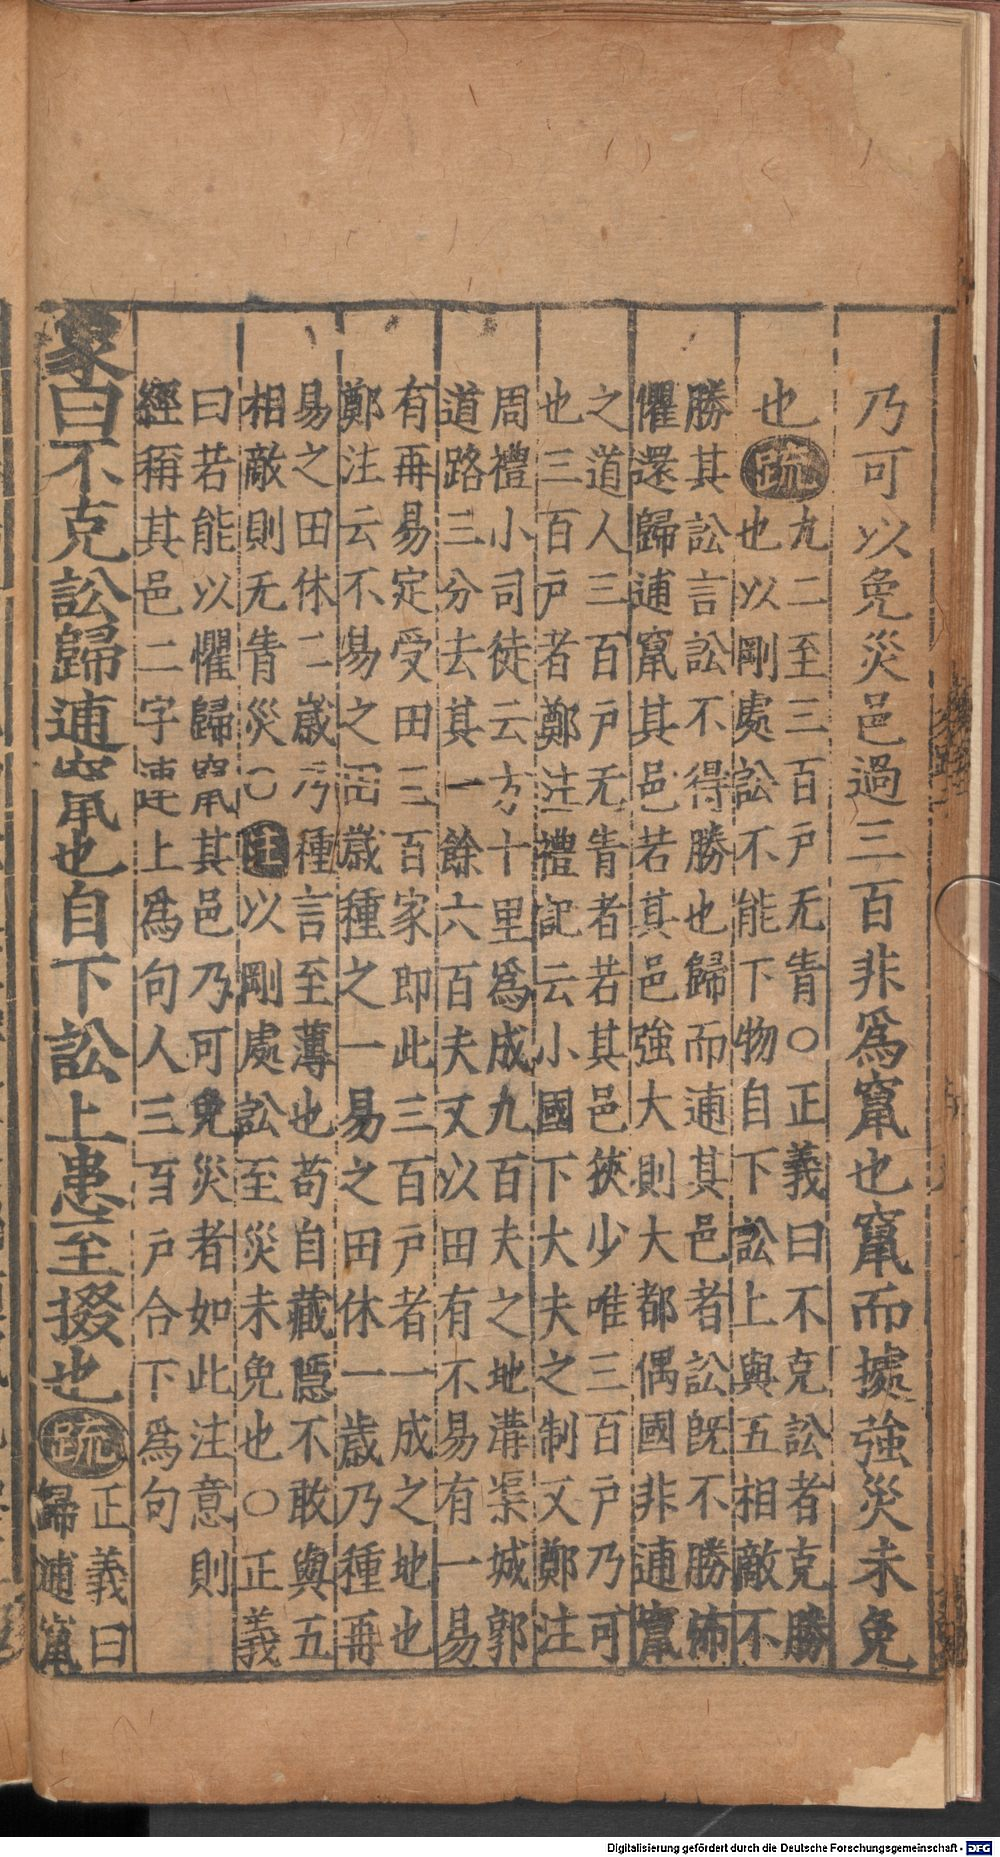 乃可以免災邑過三百非爲竄也竄而據強災未免
也疏九二至三百戶无眚○正義曰不克訟者克勝
也以剛處訟不能下物自下訟上與五相敵不
勝其訟言訟不得勝也歸而逋其邑者訟既不勝怖
懼還歸逋竄其邑若其邑強大則大都偶國非逋竄
之道人三百戶无眚者若其邑狹少唯三百戶乃可
也三百戶者鄭注禮記云小國下大夫之制又鄭注
周禮小司徒云方十里爲成九百夫之地溝渠城郭
道路三分去其一餘六百夫又以田有不易有一易
有再易定受田三百家即此三百戶者一成之地也
鄭注云不易之田歲種之一易之田休一歲乃種再
易之田休二歲乃種言至薄也苟自藏隱不敢與五
相敵則无眚災○注以剛處訟至災未免也○正義
曰若能以懼歸竄其邑乃可免災者如此注意則
經稱其邑二字連上爲句人三百戶合下爲句
象曰不克訟歸逋竄也自下訟上患至掇也疏正義曰
歸逋竄
Digitalisierung gefördert durch die Deutsche Forschungsgemeinschaft - DFG